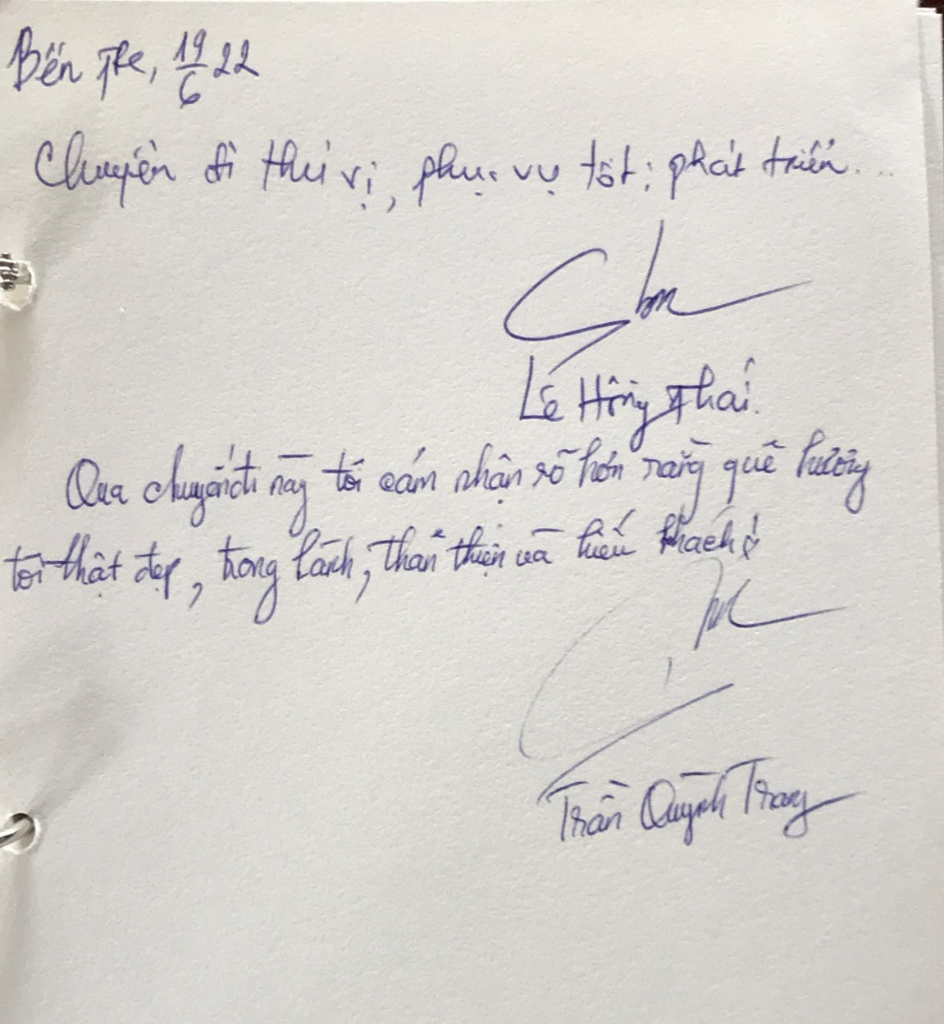 Bến Tre, 19/6 22
Chuyến đi thú vị, phục vụ tốt; phát triển...
Lê Hồng Thái.
Qua chuyến đi này tôi cảm nhận rõ hơn rằng quê hương
tôi thật đẹp, trong lành, thân thiện và hiếu khách!
Trần Quỳnh Trang